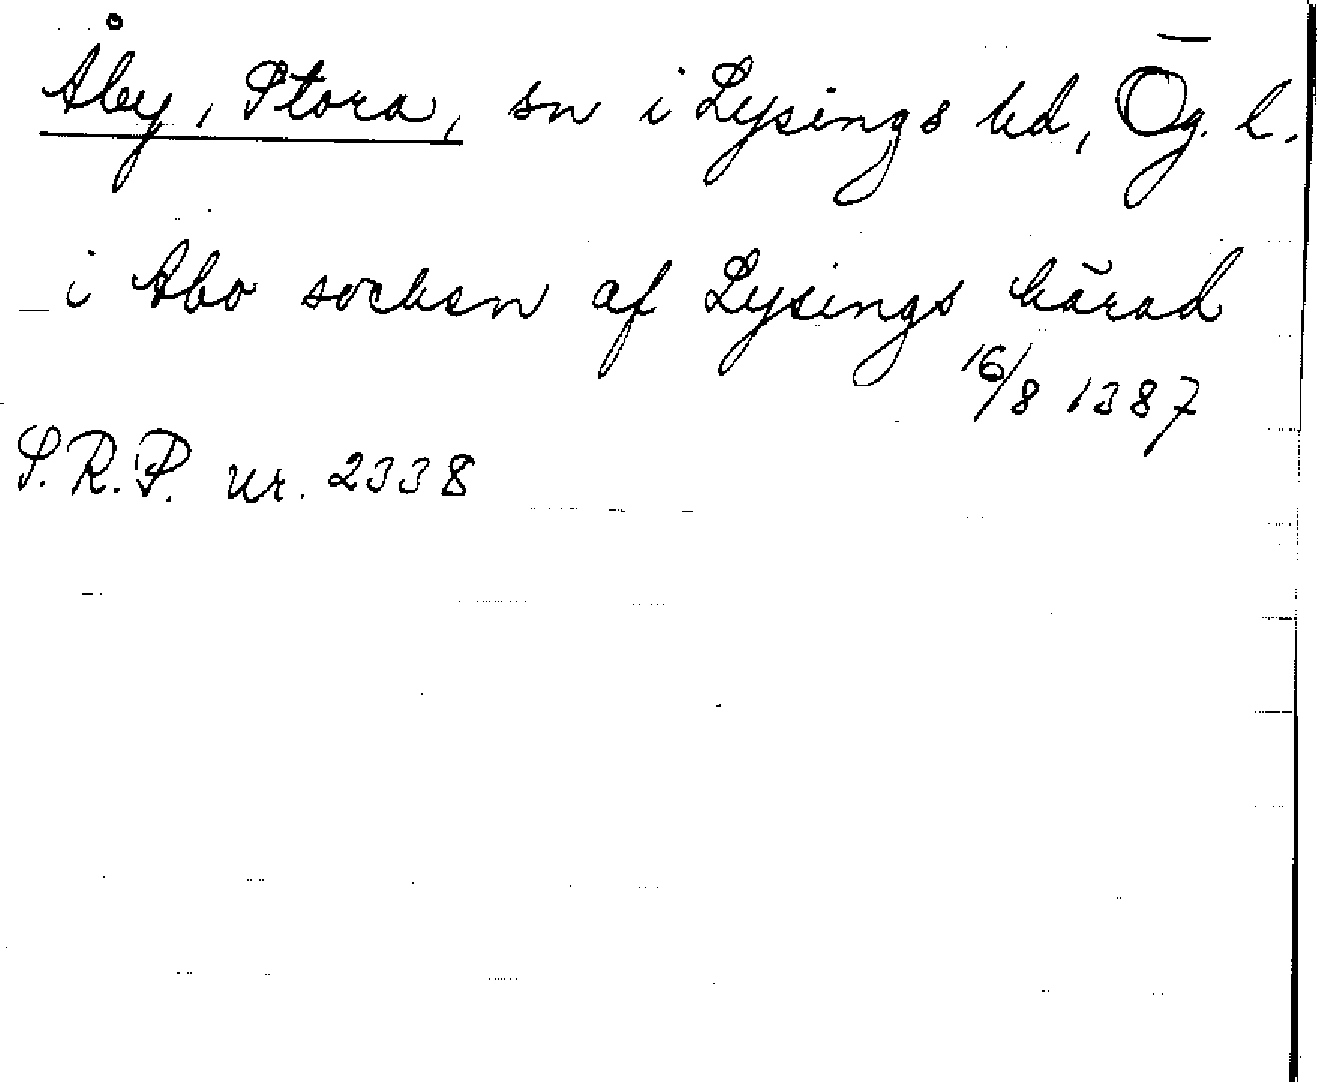 Åby, Stora, sn i Lysings hd, Ög. l.
i Abo socken af Lysings härad
16/8 1387
S.R.P. nr. 2338